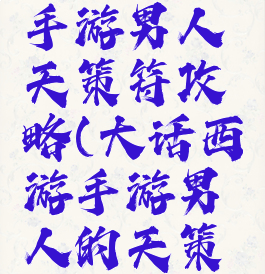 手游男人
天策符攻
略(大话西
游手游男
人的天策